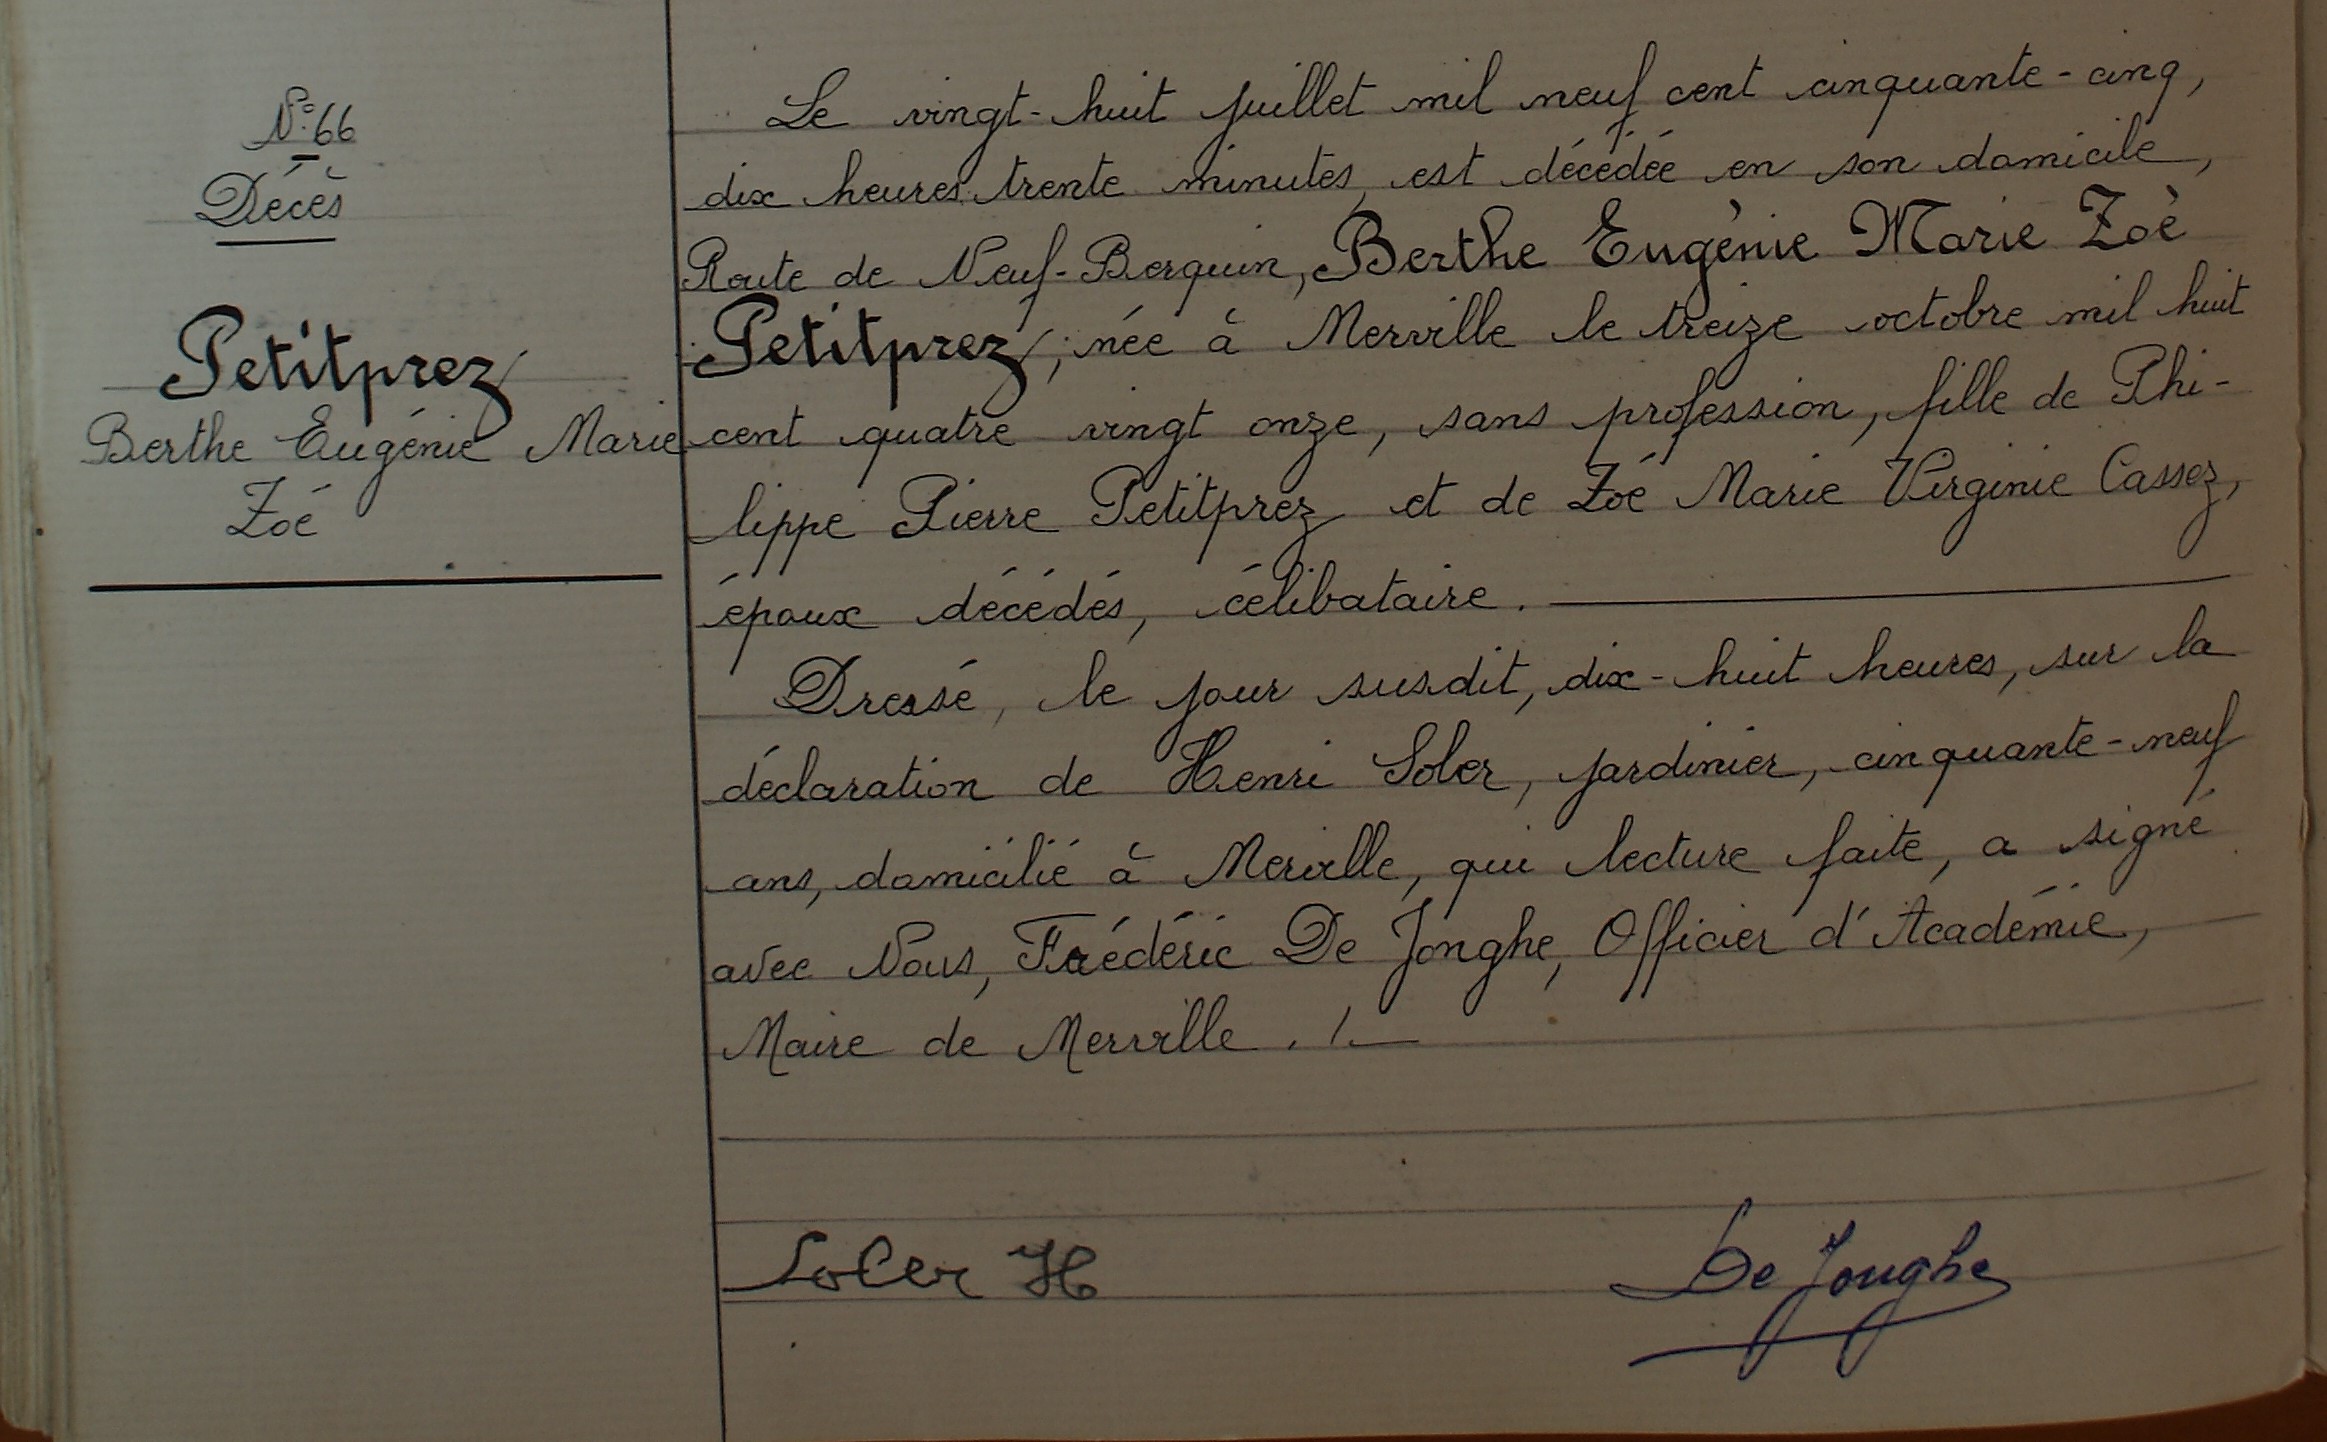 N° 66
Décès
Petitprez
Berthe Eugénie Marie
Zoé
Le vingt-huit juillet mil neuf cent cinquante-cinq,
dix heures trente minutes, est décédée en son domicile,
Route de Neuf-Berquin, Berthe Eugénie Marie Zoé
Petitprez, née à Merville le treize octobre mil huit
cent quatre vingt onze, sans profession, fille de Phi-
lippe Pierre Petitprez et de Zoé Marie Virginie Cassez,
époux décédés, célibataire.
Dressé, le jour susdit, dix-huit heures, sur la
déclaration de Henri Soler, jardinier, cinquante-neuf
ans, domicilié à Merville, qui lecture faite, a signé
avec Nous, Frédéric De Jonghe, Officier d'Académie,
Maire de Merville ./.
Soler H
De Jonghe